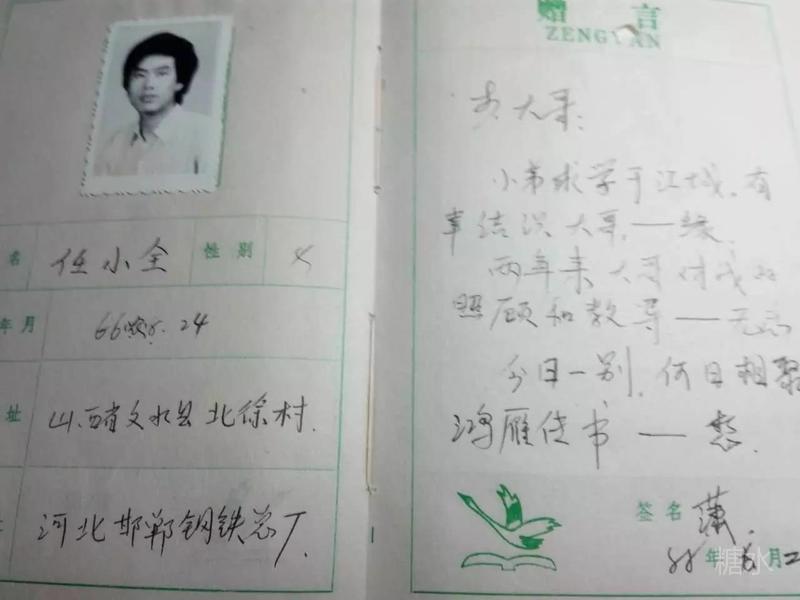 名 任小全 性别
年月 66 8.24
址 山西省文水县北徐村.
河北邯郸钢铁总厂.
赠言
ZENGYAN
大哥:
小弟求学于江城.有
幸结识大哥,一缘.
两年来大哥对我的
照顾和教导——无
今日一别,何日相聚
鸿雁传书——愁.
签名 潇.
88年6月2
糖水